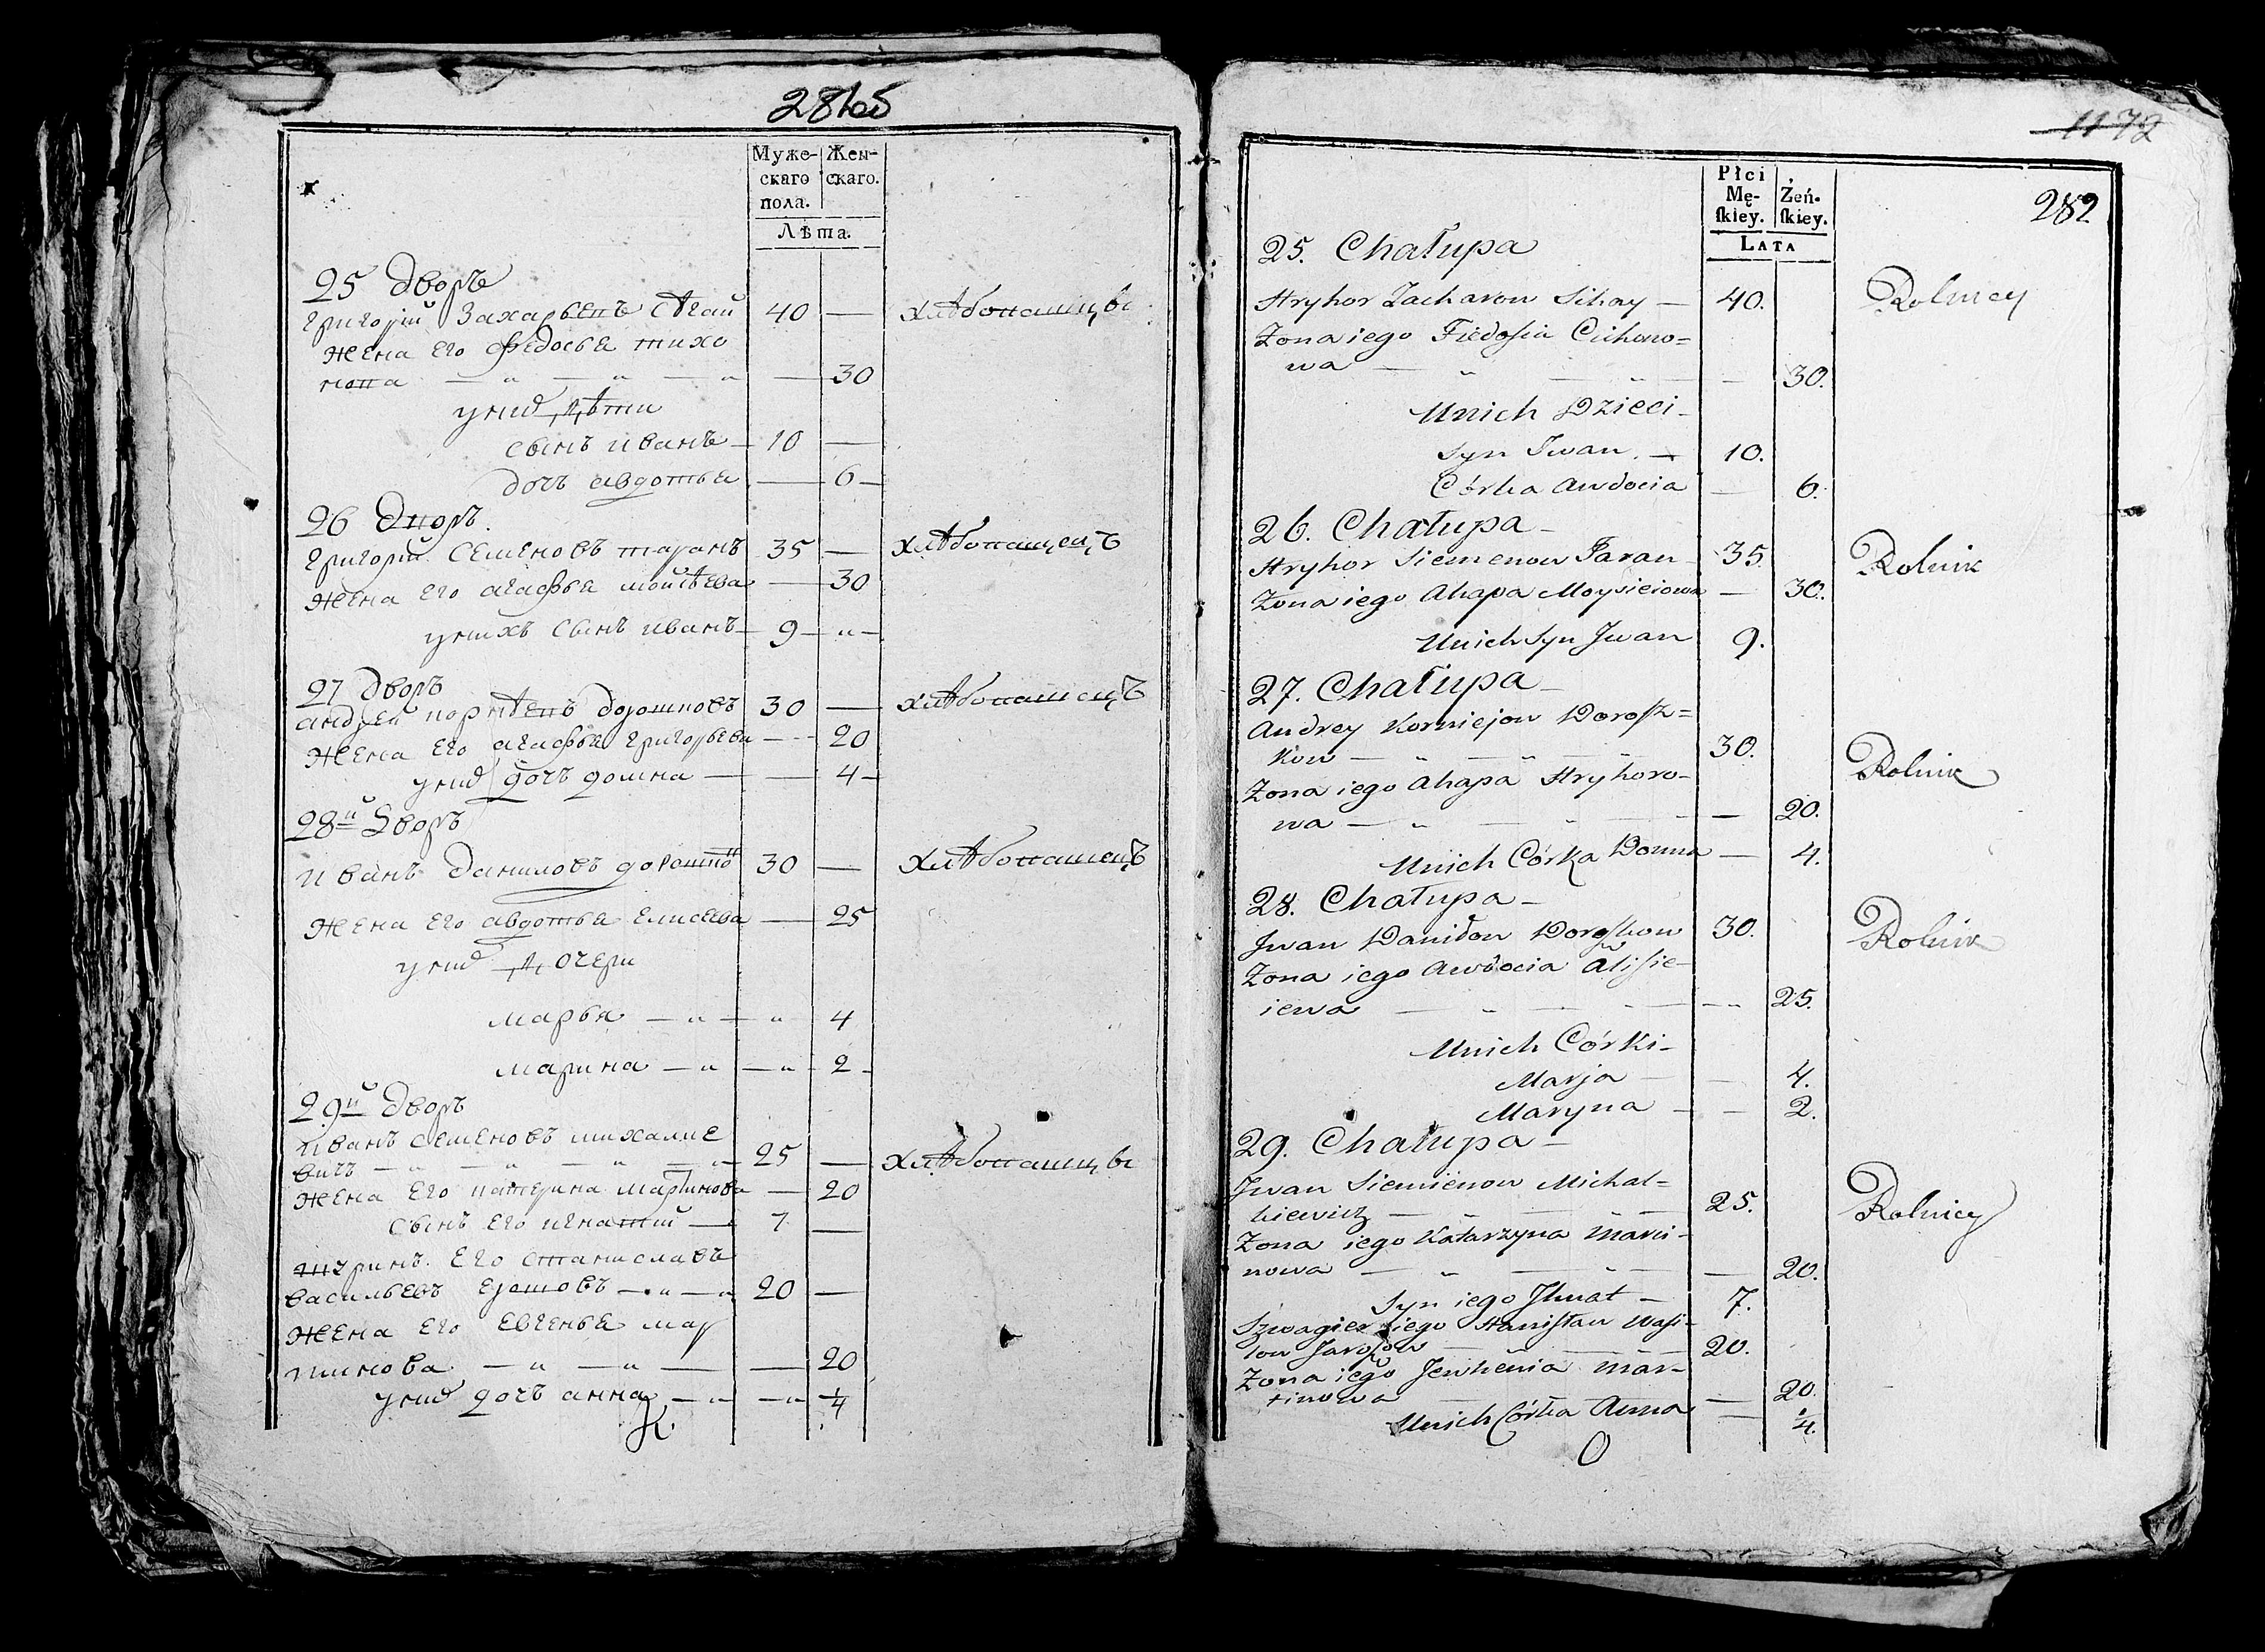 2865
Муже-
скаго
пола.
Жен-
скаго.
Лѣта.
25 Дворъ
Григорій Захарьевъ Сѣгай 40 — хлѣбопашцы
Жена Его Федосья тихо
нова — „ — „ — „ — 30
у нихъ дѣти
сынъ иванъ — 10 —
дочь авдотья — 6 —
26 Дворъ.
Григорій Семеновъ таранъ 35 — хлѣбопашецъ
Жена Его агафья мойсѣева — 30
у нихъ сынъ иванъ — 9 — „ —
27 Дворъ
андрей корнѣевъ дорошковъ 30 — хлѣбопашецъ
Жена Его агафья григорьева — 20
у них дочь домна — — 4 —
28й Дворъ
иванъ даниловъ дорошко 30 — хлѣбопашецъ
Жена Его авдотья Елисеева — 25
у них дочери
марья — „ — „ 4
марина — „ — „ 2 —
29й Дворъ
иванъ семеновъ михалке
вичъ — „ — „ — „ — „ 25 — хлѣбопашцы
Жена Его катерина мартинова — 20
сынъ Его игнатій — 7 —
шуринъ Его станиславъ
васильевъ Ерошовъ — „ — „ 20 —
Жена Его Евгенья мар
тинова — „ — „ — — 20
у них дочь анна — „ — „ 1/4
1172
282
Płci
Mę-
ſkiey.
Żeń-
ſkiey.
LATA
25. Chałupa
Hryhor Zacharow Sihay — 40. Rolnicy
Zona iego Fiedosia Cichono=
wa — „ — „ — — 30.
Unich Dzieci —
Syn Iwan. — 10.
Córka Awdocia — 6.
26. Chałupa —
Hryhor Siemenow Taran — 35. Rolnik
Zona iego Ahapa Moysieiowa — 30.
Unich Syn Jwan 9.
27. Chałupa —
Andrey Korniejow Dorosz=
kow — „ — „ — „ 30.
Rolnik
Zona iego Ahapa Hryhoro-
wa — „ — „ — — 20.
Unich Córka Domna — 4.
28. Chałupa —
Jwan Daniłow Doroszkow 30. Rolnik
Zona iego Awdocia Alisie-
iewa — „ — — „ 25.
Unich Córki —
Marja — — 4.
Maryna — — 2.
29. Chałupa —
Jwan Siemienow Michal=
kiewicz — „ — — 25. Rolnicy
Zona iego Katarzyna Marci-
nowa — „ — „ — — 20.
Syn iego Jhnat — 7.
Szwagier iego Stanisław Wasi-
low Jaroszow — — 20.
Zona iego Jewhenia Mar-
tinowa — — — 20.
Unich Córka Anna — 1/4.